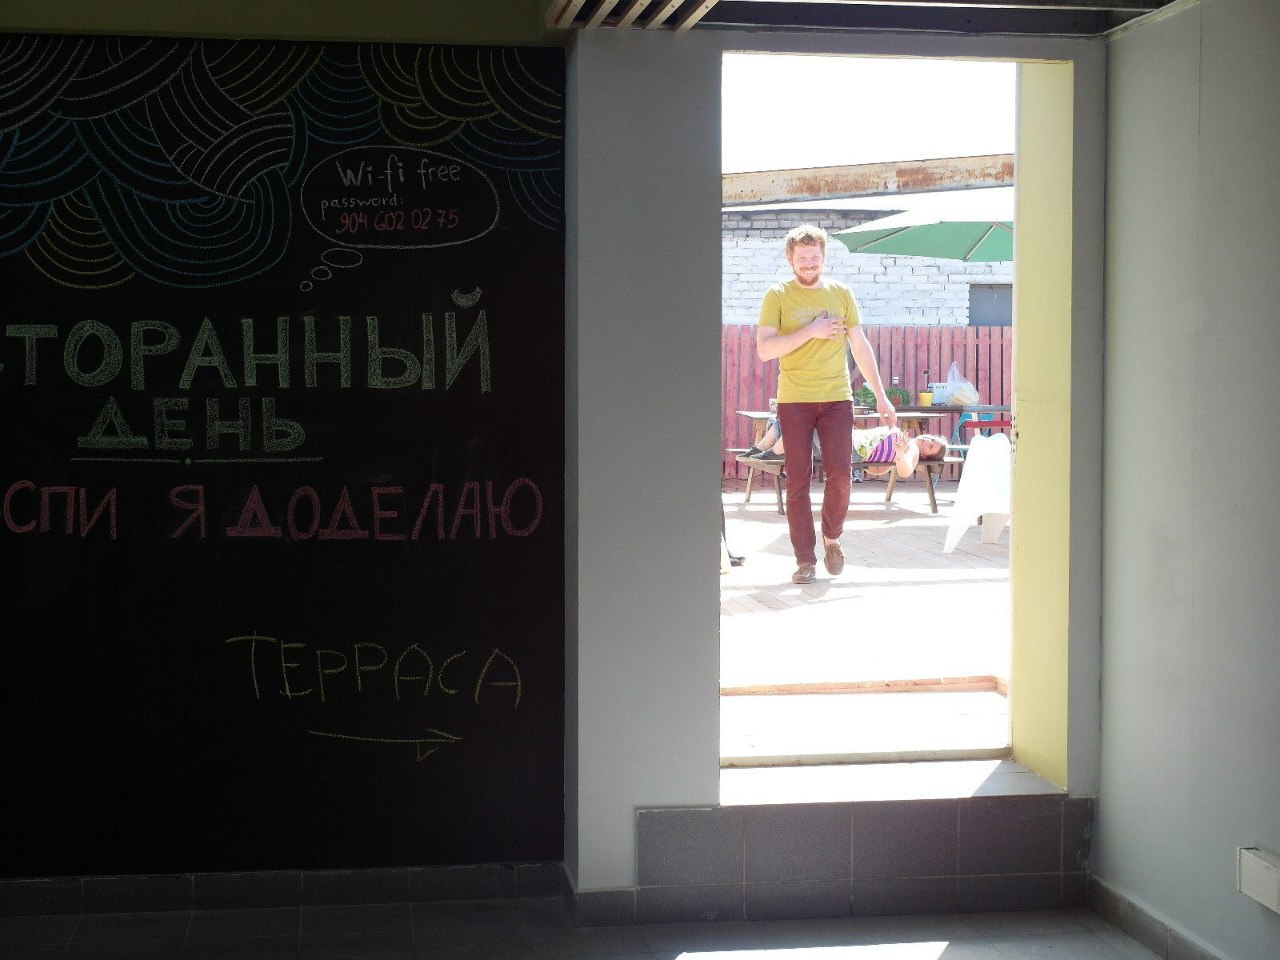 Wi-fi free
password:
904 602 02 75
СТОРАННЫЙ
ДЕНЬ
СПИ Я ДОДЕЛАЮ
ТЕРРАСА